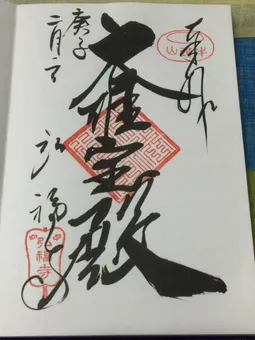 奉拝
大雄宝殿
庚子
二月
弘福寺
弘福寺